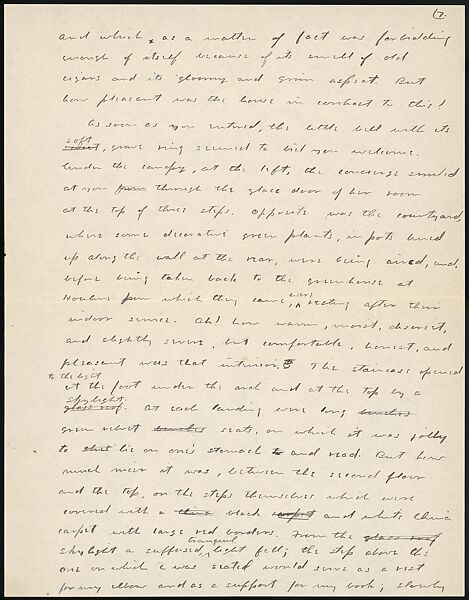 7.
and which, as a matter of fact was forbidding
enough of itself because of its smell of old
cigars and its gloomy and grim aspect. But
how pleasant was the house in contrast to this!
As soon as you entered, the little bell with its
soft
silent, grave ring seemed to bid you welcome.
Under the canopy, at the left, the concierge smiled
at you from through the glass door of her room
at the top of three steps. Opposite was the courtyard,
where some decorative green plants, in pots lined
up along the wall at the rear, were being aired, and,
before being taken back to the greenhouse at
from which they came, were resting after their
indoor service. Ah! how warm, moist, discreet,
and slightly severe, but comfortable, honest, and
pleasant was that interior. The staircase opened
to the light
at the foot under the arch and at the top by a
skylight
glass roof. At each landing were long benches
green velvet benches seats, on which it was jolly
to lie on one's stomach and read. But how
much nicer it was, between the second floor
and the top, on the steps themselves which were
covered with a china black carpet and white China
carpet with large red borders. From the glass roof
tranquil
skylight a suffused, light fell; the step above the
one on which I was seated would serve as a rest
for my elbow and as a support for my book; slowly